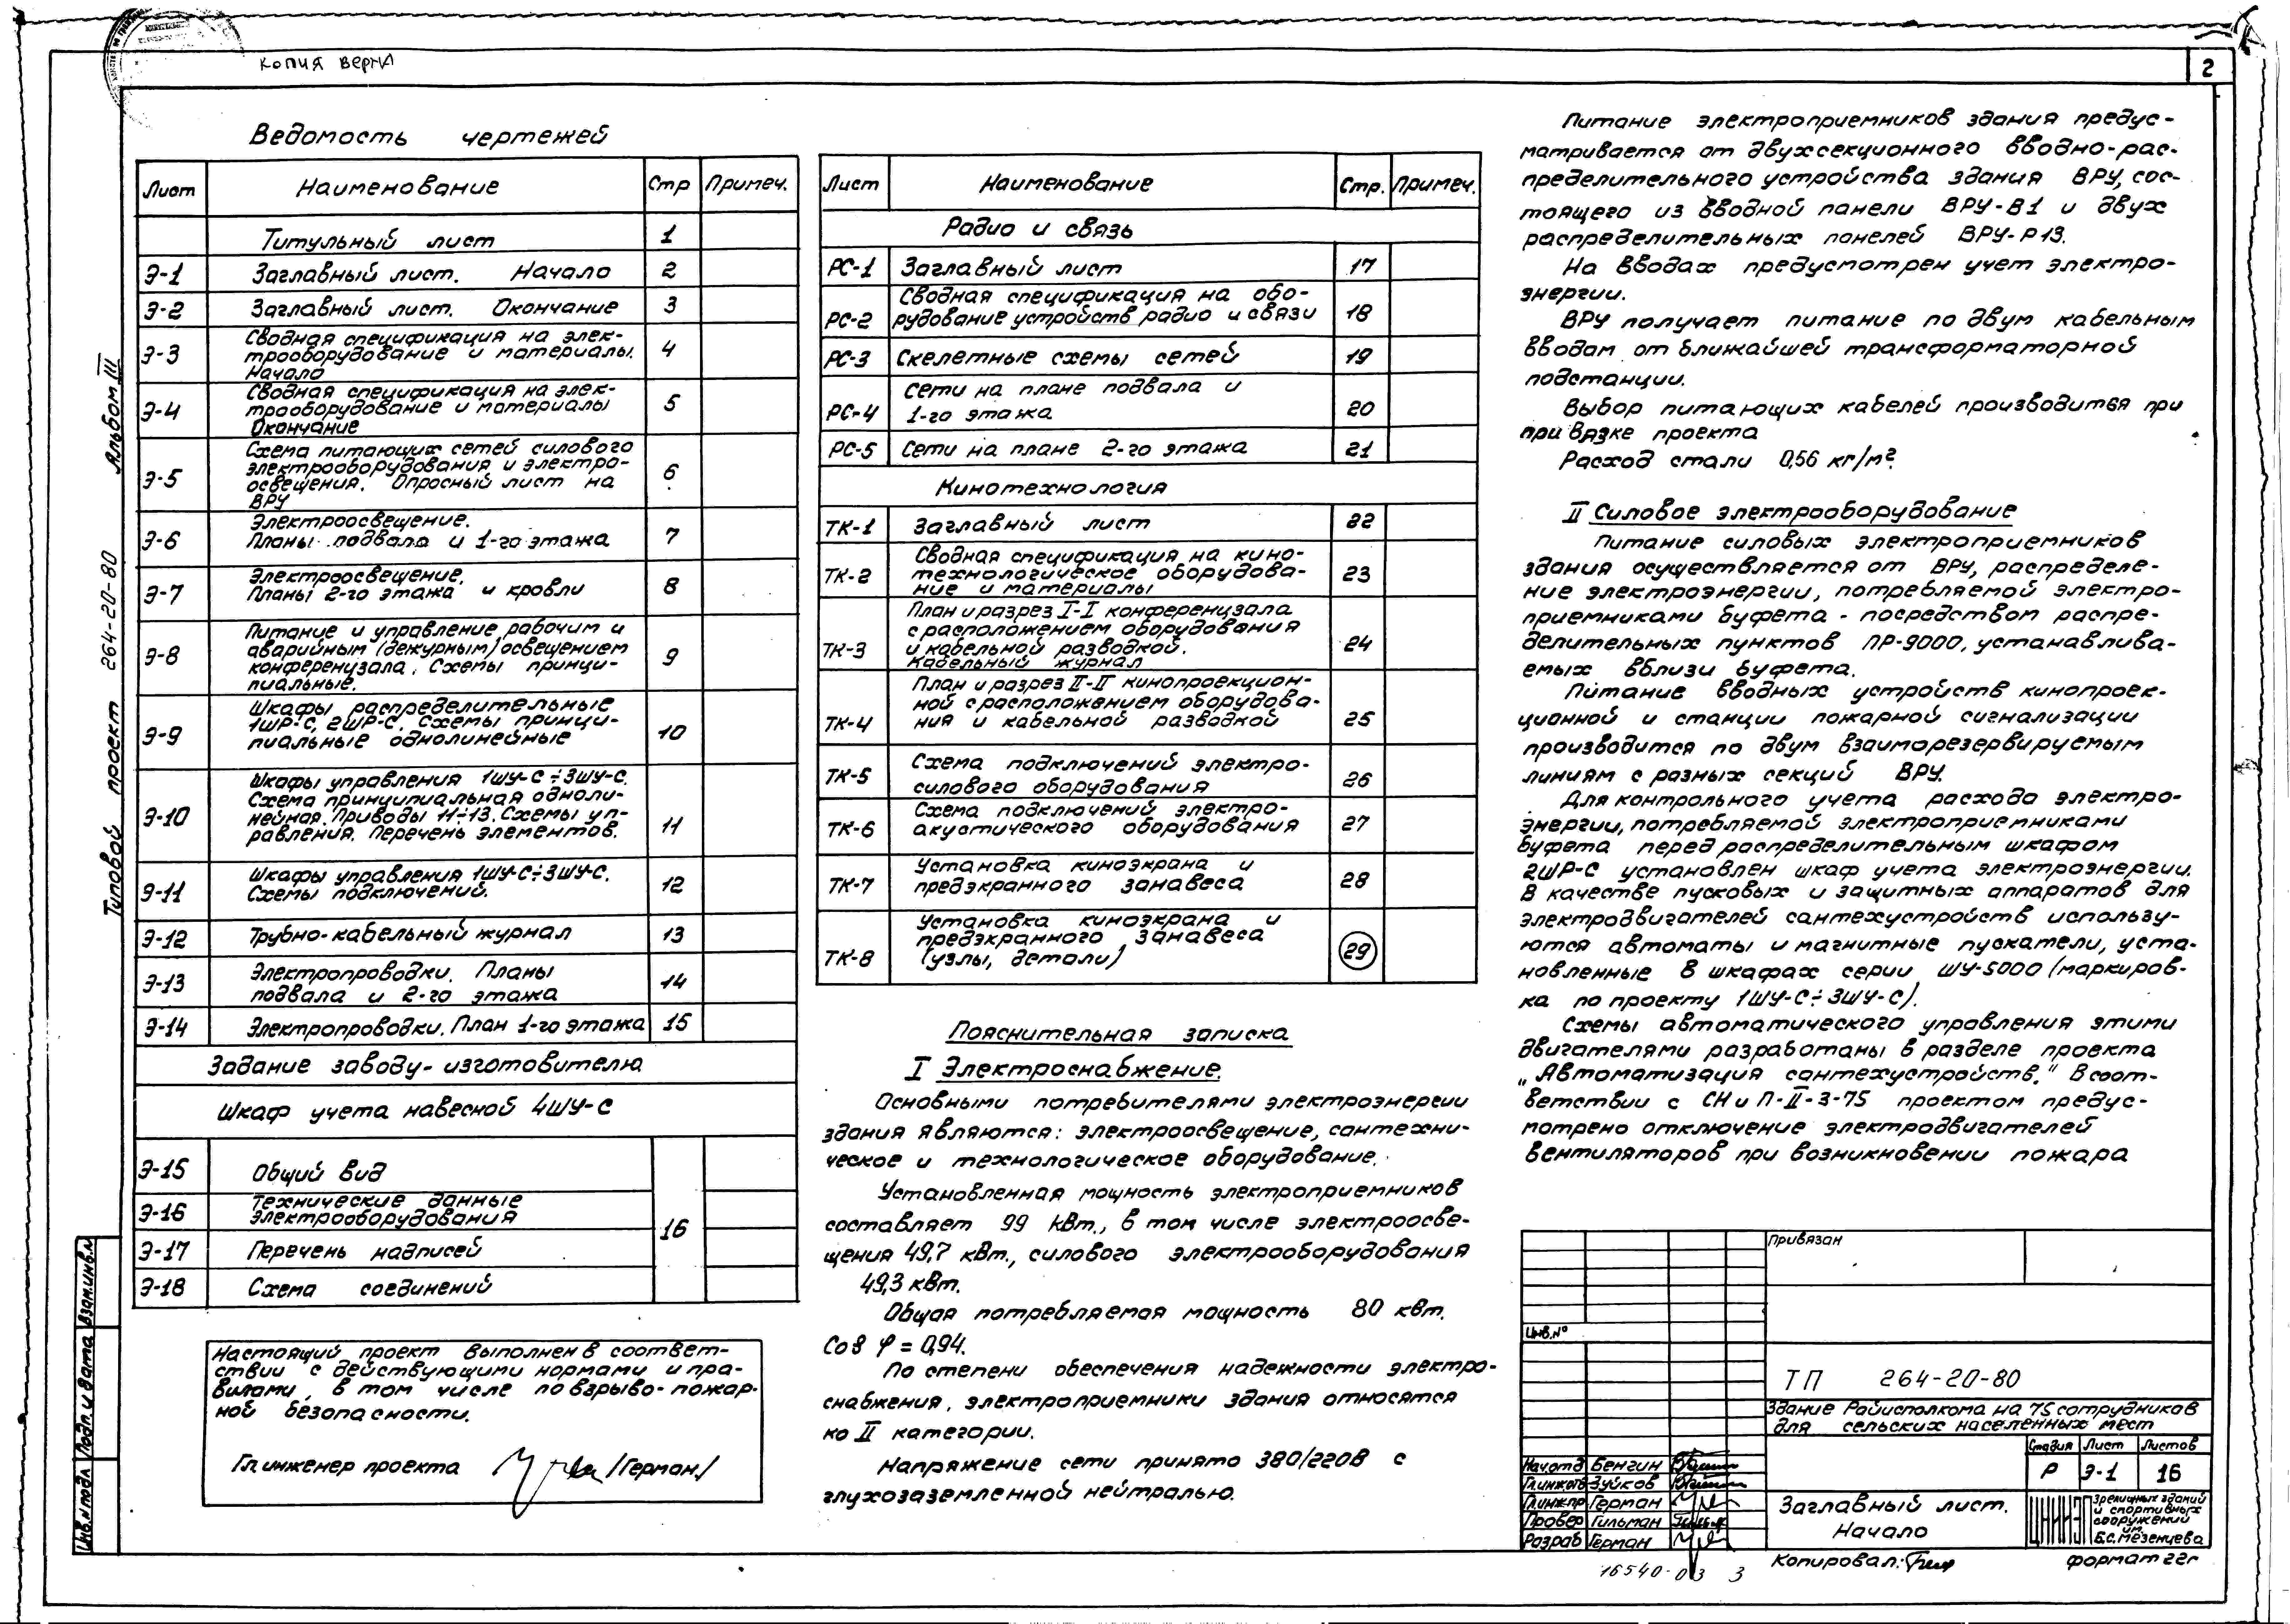 копия верна
2
Альбом III
Типовой проект 264-20-80
Ведомость чертежей
Лист Наименование Стр Примеч.
Титульный лист 1
Э-1 Заглавный лист. Начало 2
Э-2 Заглавный лист. Окончание 3
Э-3 Сводная спецификация на элек-
трооборудование и материалы.
Начало 4
Э-4 Сводная спецификация на элек-
трооборудование и материалы
Окончание 5
Э-5 Схема питающих сетей силового
электрооборудования и электро-
освещения. Опросный лист на
ВРУ 6
Э-6 Электроосвещение.
Планы подвала и 1-го этажа 7
Э-7 Электроосвещение.
Планы 2-го этажа и кровли 8
Э-8 Питание и управление рабочим и
аварийным (дежурным) освещением
конференцзала. Схемы принци-
пиальные. 9
Э-9 Шкафы распределительные
1ШР-С, 2ШР-С. Схемы принци-
пиальные однолинейные 10
Э-10 Шкафы управления 1ШУ-С÷3ШУ-С.
Схема принципиальная одноли-
нейная. Приводы 11÷13. Схемы уп-
равления. Перечень элементов. 11
Э-11 Шкафы управления 1ШУ-С÷3ШУ-С.
Схемы подключений. 12
Э-12 Трубно-кабельный журнал 13
Э-13 Электропроводки. Планы
подвала и 2-го этажа 14
Э-14 Электропроводки. План 1-го этажа 15
Задание заводу-изготовителю
Шкаф учета навесной 4ШУ-С
Э-15 Общий вид
Э-16 Технические данные
электрооборудования
16
Э-17 Перечень надписей
Э-18 Схема соединений
Настоящий проект выполнен в соответ-
ствии с действующими нормами и пра-
вилами, в том числе по взрыво-пожар-
ной безопасности.
Гл.инженер проекта /Герман/
Лист Наименование Стр. Примеч.
Радио и связь
РС-1 Заглавный лист 17
РС-2 Сводная спецификация на обо-
рудование устройств радио и связи 18
РС-3 Скелетные схемы сетей 19
РС-4 Сети на плане подвала и
1-го этажа 20
РС-5 Сети на плане 2-го этажа 21
Кинотехнология
ТК-1 Заглавный лист 22
ТК-2 Сводная спецификация на кино-
технологическое оборудова-
ние и материалы 23
ТК-3 План и разрез I-I конференцзала
с расположением оборудования
и кабельной разводкой.
Кабельный журнал 24
ТК-4 План и разрез II-II кинопроекцион-
ной с расположением оборудова-
ния и кабельной разводкой 25
ТК-5 Схема подключений электро-
силового оборудования 26
ТК-6 Схема подключений электро-
акустического оборудования 27
ТК-7 Установка киноэкрана и
предэкранного занавеса 28
ТК-8 Установка киноэкрана и
предэкранного занавеса
(узлы, детали) 29
Пояснительная записка
I Электроснабжение.
Основными потребителями электроэнергии
здания являются: электроосвещение, сантехни-
ческое и технологическое оборудование.
Установленная мощность электроприемников
составляет 99 кВт., в том числе электроосве-
щения 49,7 кВт., силового электрооборудования
49,3 кВт.
Общая потребляемая мощность 80 кВт.
Cos φ = 0,94.
По степени обеспечения надежности электро-
снабжения, электроприемники здания относятся
ко II категории.
Напряжение сети принято 380/220В с
глухозаземленной нейтралью.
Питание электроприемников здания предус-
матривается от двухсекционного вводно-рас-
пределительного устройства здания ВРУ, сос-
тоящего из вводной панели ВРУ-В1 и двух
распределительных панелей ВРУ-Р13.
На вводах предусмотрен учет электро-
энергии.
ВРУ получает питание по двум кабельным
вводам от ближайшей трансформаторной
подстанции.
Выбор питающих кабелей производится при
привязке проекта
Расход стали 0,56 кг/м².
II Силовое электрооборудование
Питание силовых электроприемников
здания осуществляется от ВРУ, распределе-
ние электроэнергии, потребляемой электро-
приемниками буфета - посредством распре-
делительных пунктов ПР-9000, устанавлива-
емых вблизи буфета.
Питание вводных устройств кинопроек-
ционной и станции пожарной сигнализации
производится по двум взаиморезервируемым
линиям с разных секций ВРУ.
Для контрольного учета расхода электро-
энергии, потребляемой электроприемниками
буфета перед распределительным шкафом
2ШР-С установлен шкаф учета электроэнергии.
В качестве пусковых и защитных аппаратов для
электродвигателей сантехустройств использу-
ются автоматы и магнитные пускатели, уста-
новленные в шкафах серии ШУ-5000 (маркиров-
ка по проекту 1ШУ-С÷3ШУ-С).
Схемы автоматического управления этими
двигателями разработаны в разделе проекта
„Автоматизация сантехустройств." В соот-
ветствии с СНиП-II-3-75 проектом предус-
мотрено отключение электродвигателей
вентиляторов при возникновении пожара
Привязан
Инв.№
ТП 264-20-80
Здание Райисполкома на 75 сотрудников
для сельских населенных мест
Стадия Лист Листов
Р Э-1 16
Заглавный лист.
Начало
Зрелищных зданий
и спортивных
сооружений
им.
Б.С. Мезенцева
Нач.отд Бенгин
Гл.инж.отд Зуйков
Гл.инж.пр Герман
Провер Гильман
Разраб Герман
16540-03 3
Копировал:
формат 22г
Инв.№подл Подп. и дата Взам.инв.№